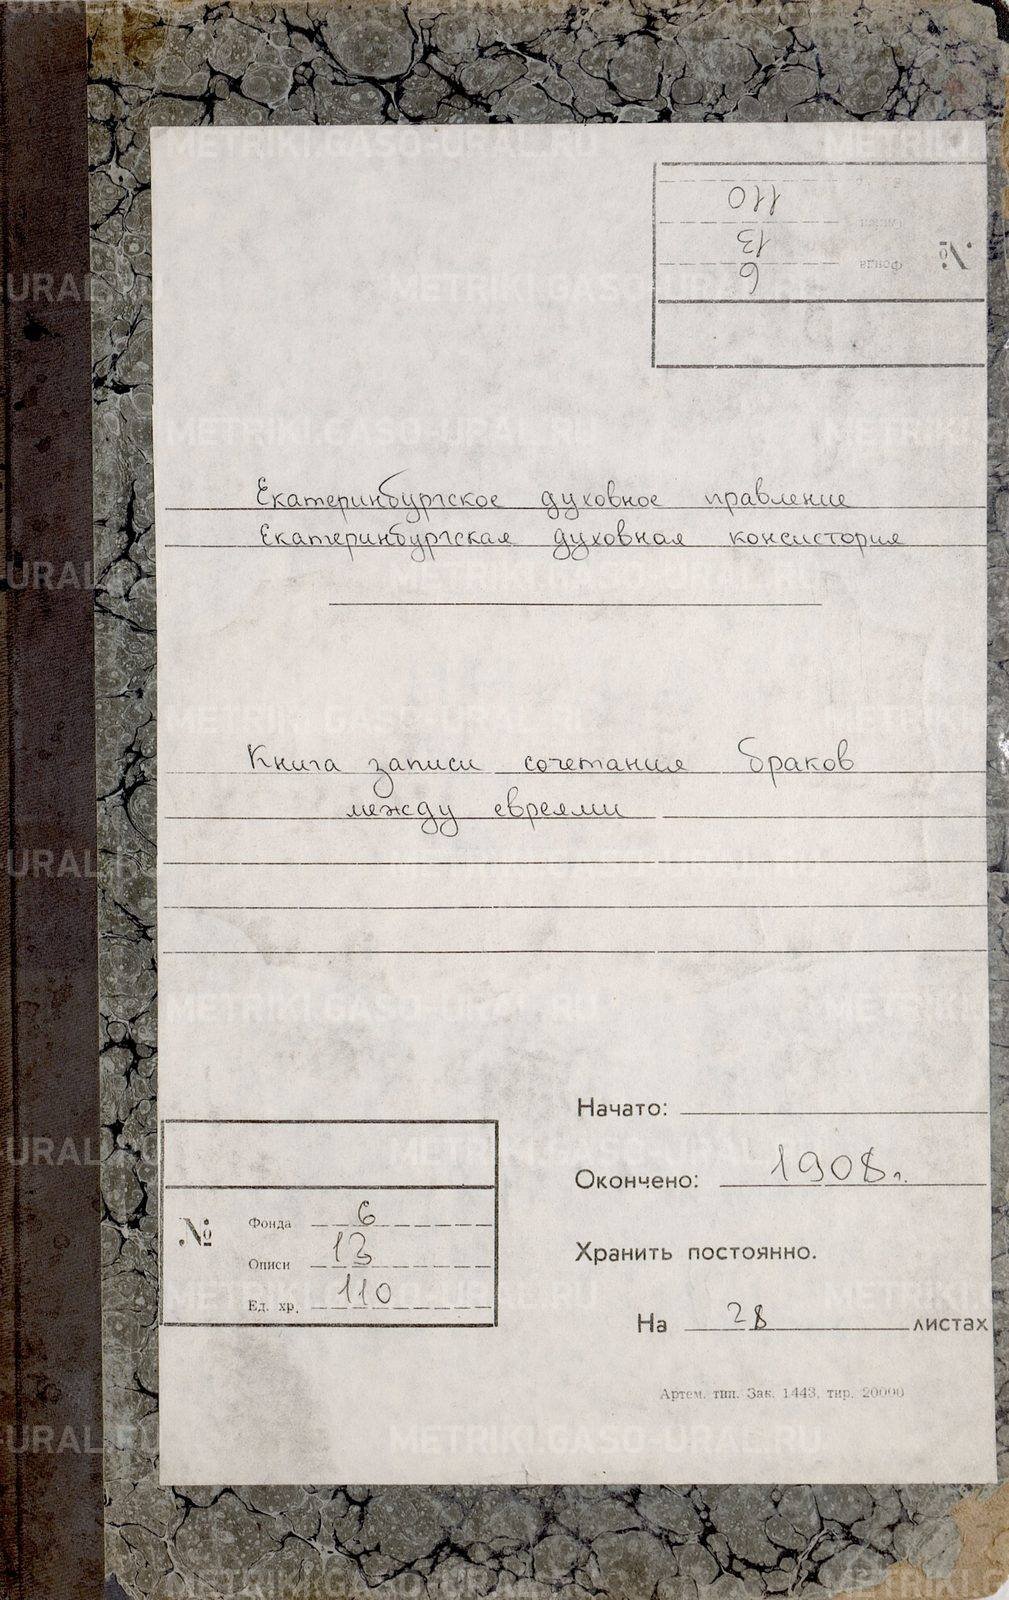 №
Фонда 6
Описи 13
110
Екатеринбургское духовное правление
Екатеринбургская духовная консистория
Книга записи сочетания браков
между евреями
Начато:
Окончено: 1908 г.
Хранить постоянно.
На 28 листах
№
Фонда 6
Описи 13
Ед. хр. 110
Артем. тип. Зак. 1443, тир. 20000
METRIKI.GASO-URAL.RU